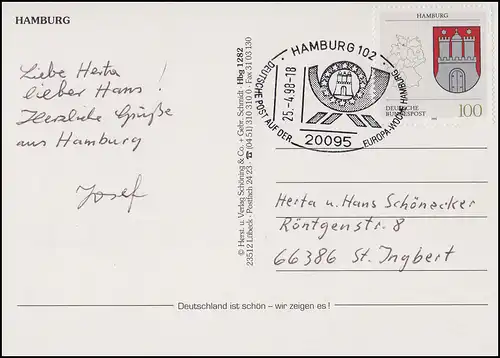 HAMBURG
Liebe Herta
lieber Hans !
Herzliche Grüße
aus Hamburg
Josef
© Herst. u. Verlag Schöning & Co. + Gebr. Schmidt Hbg 1282
23512 Lübeck · Postfach 24 23 · ☎ (04 51) 310 310 0 · Fax 31 03 130
HAMBURG 102
25.-4.98-18
DEUTSCHE POST AUF DER
20095
HAMBURG
DEUTSCHE
BUNDESPOST
100
Herta u. Hans Schönecker
Röntgenstr. 8
66386 St. Ingbert
Deutschland ist schön – wir zeigen es !